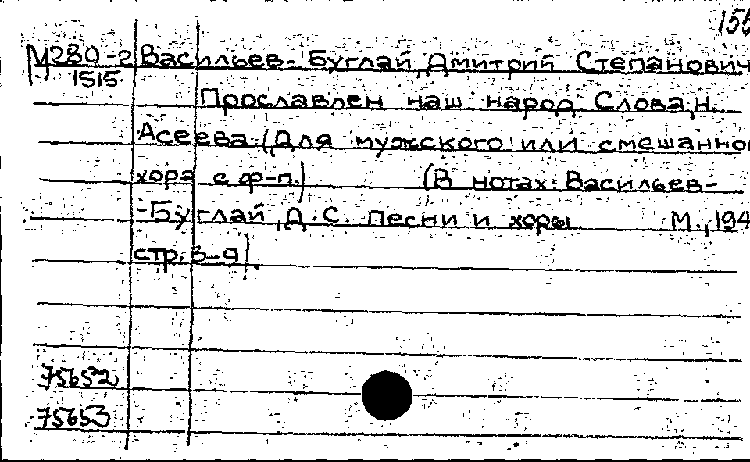 М280-2 Васильев-Буглай, Дмитрий Степанович
1515
Прославлен наш народ. Слова Н.
Асеева. (Для мужского или смешанно
хора с ф-п.) (В нотах: Васильев-
-Буглай, Д.С. Песни и хоры М., 194
стр. 3-9).
75652
75653